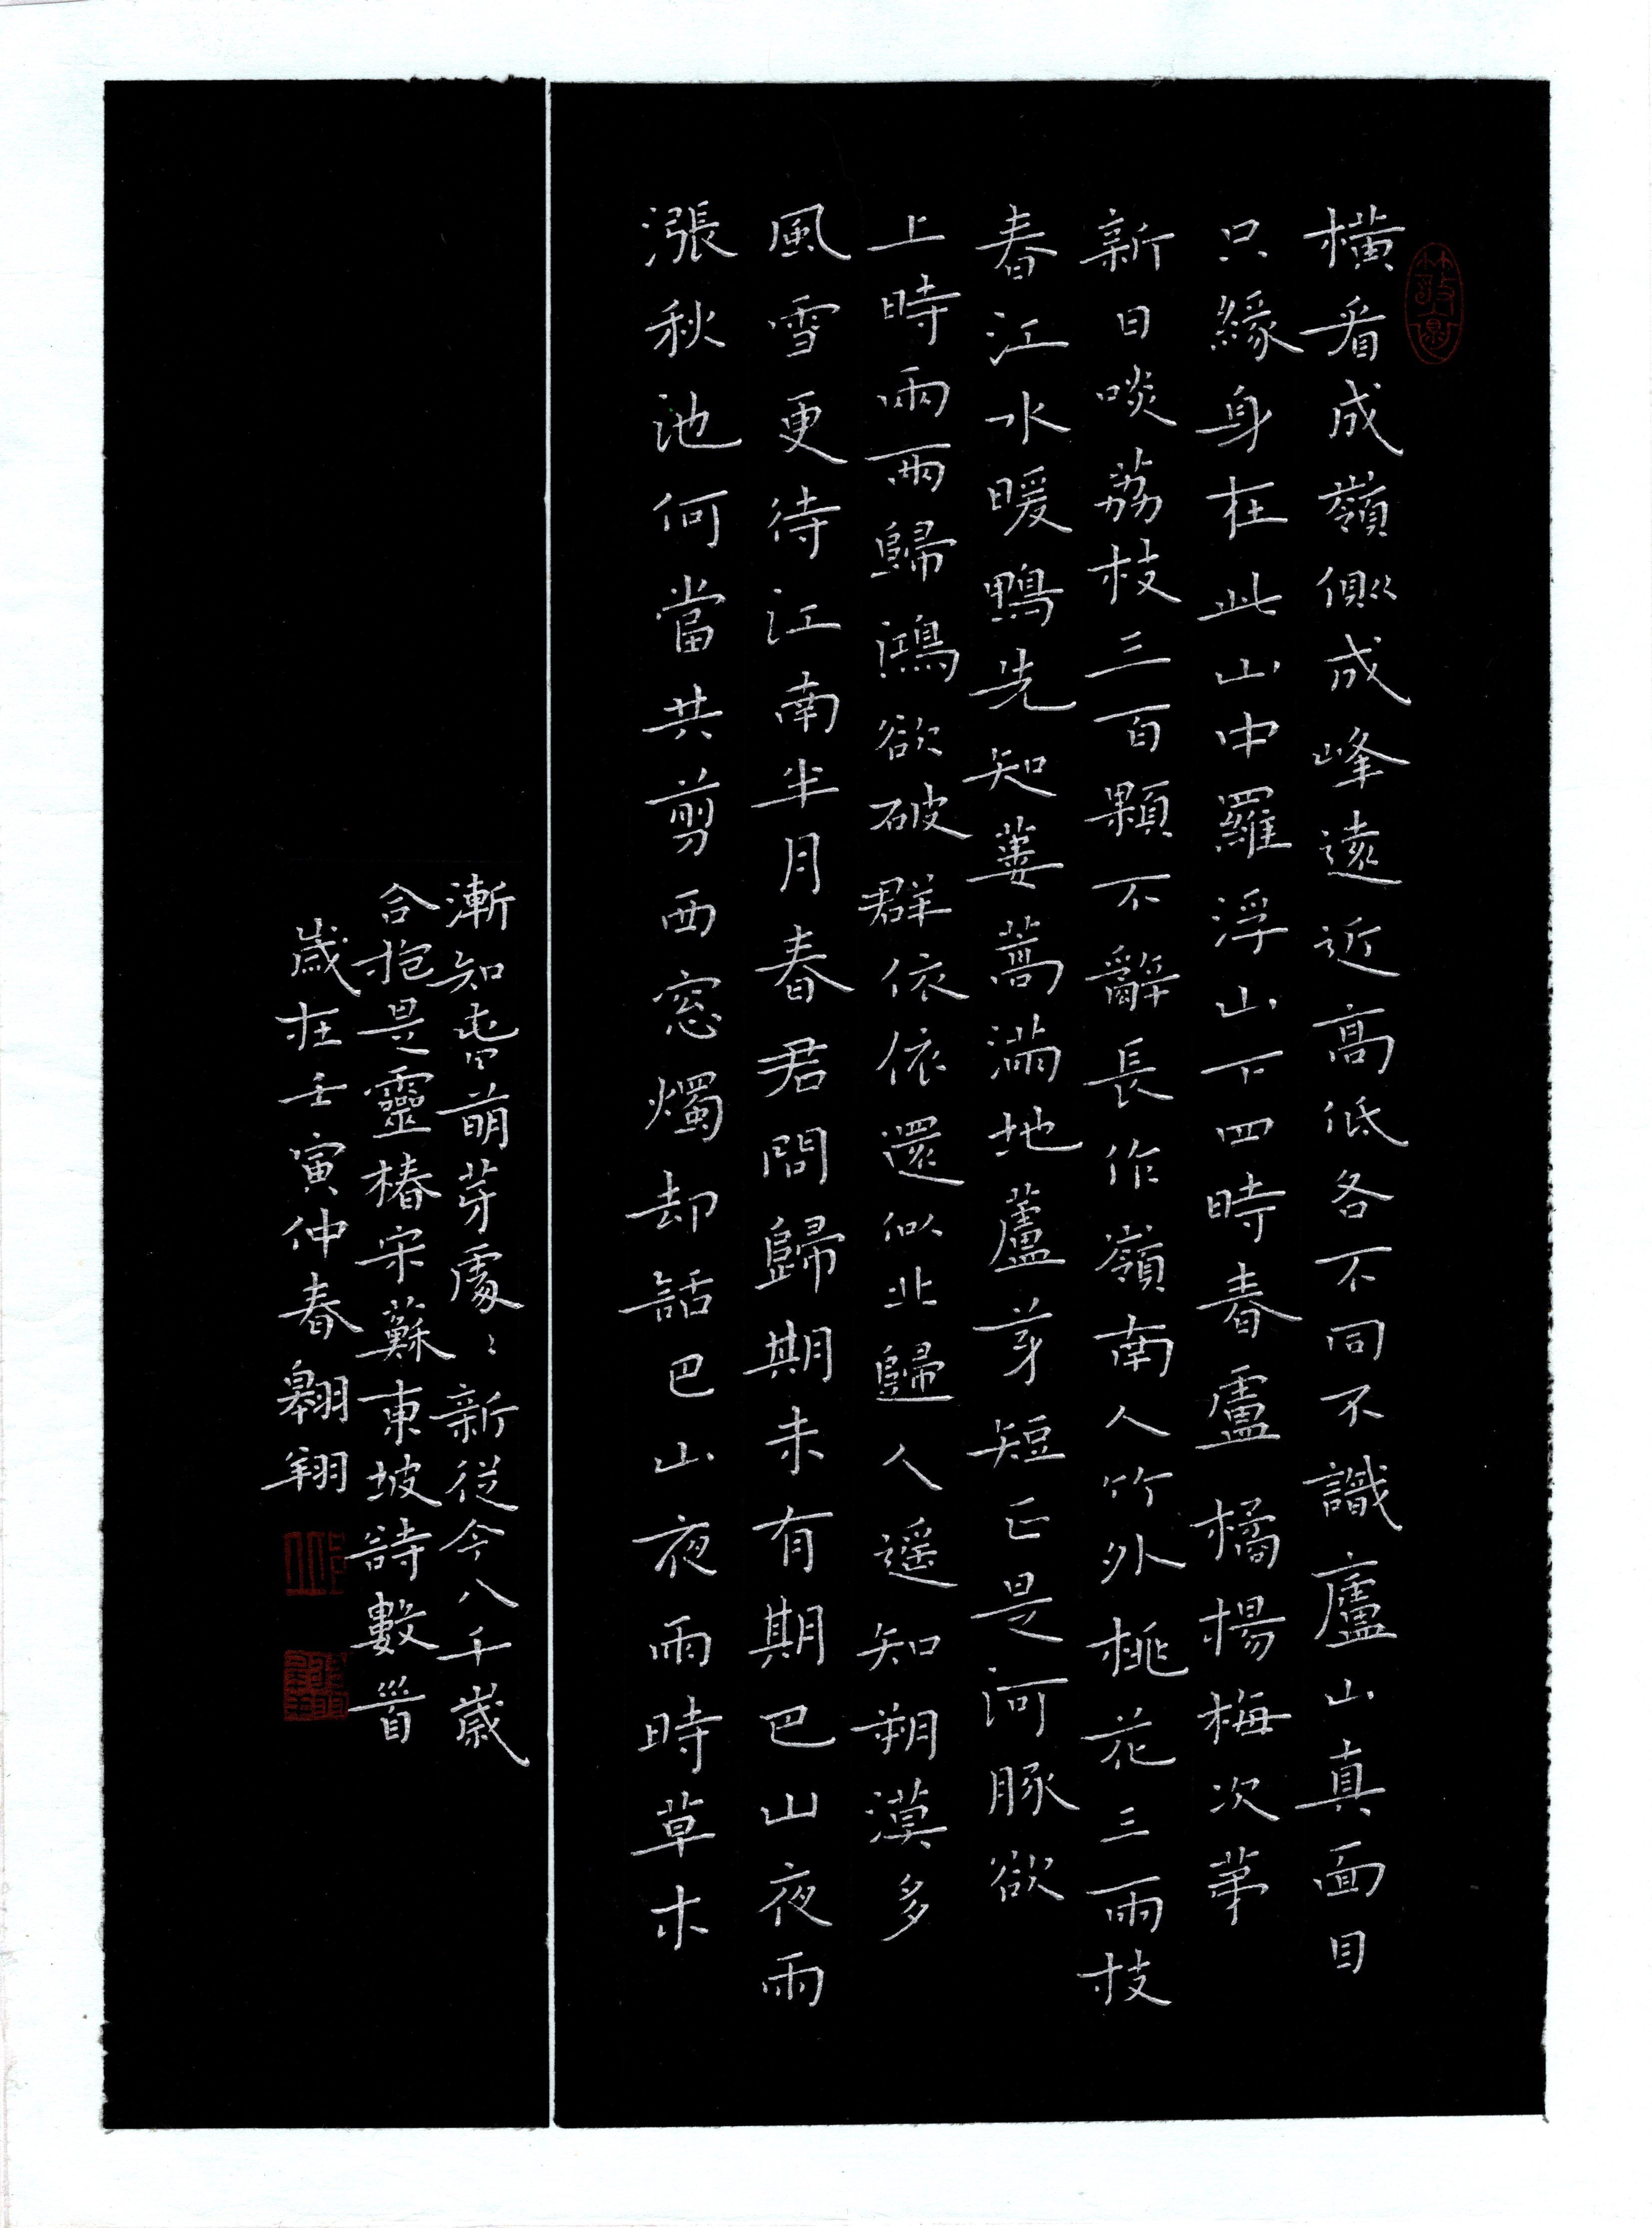 橫看成嶺側成峰遠近高低各不同不識廬山真面目
只緣身在此山中羅浮山下四時春盧橘楊梅次第
新日啖荔枝三百顆不辭長作嶺南人竹外桃花三兩枝
春江水暖鴨先知蔞蒿滿地蘆芽短正是河豚欲
上時兩兩歸鴻欲破群依依還似北歸人遙知朔漠多
風雪更待江南半月春君問歸期未有期巴山夜雨
漲秋池何當共剪西窗燭却話巴山夜雨時草木
漸知春萌芽處〻新從今八千歲
合抱是靈椿宋蘇東坡詩數首
歲在壬寅仲春翱翔